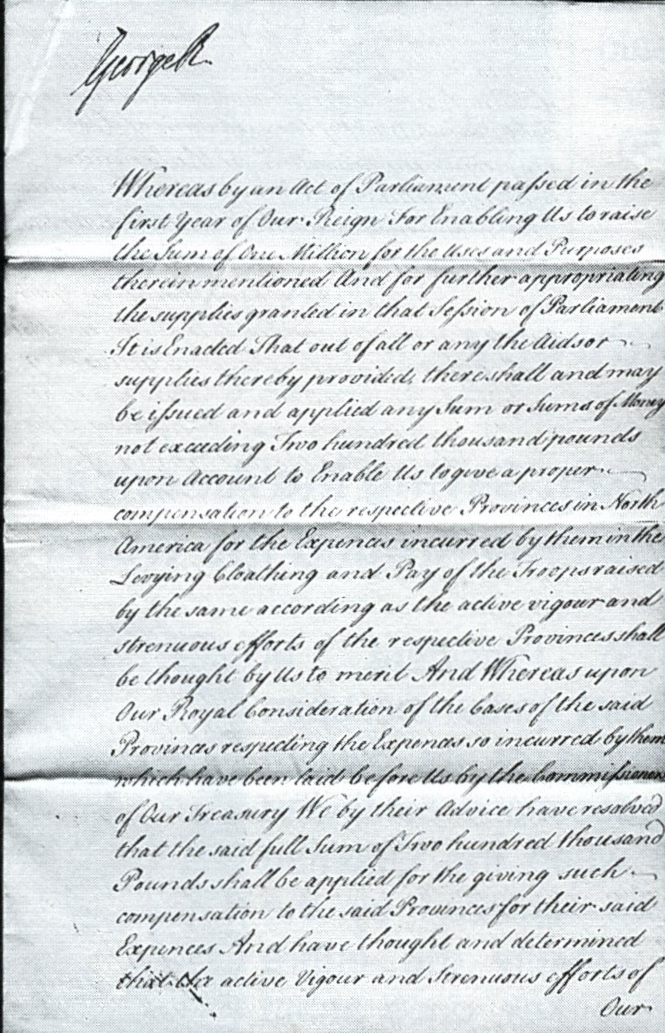 George R
Whereas by an Act of Parliament passed in the
first Year of Our Reign For Enabling Us to raise
the Sum of One Million for the Uses and Purposes
therein mentioned And for further appropriating
the supplies granted in that Session of Parliament
It is Enacted That out of all or any the Aids or
supplies thereby provided, there shall and may
be issued and applied any Sum or Sums of Money
not exceeding Two hundred thousand pounds
upon Account to Enable Us to give a proper
compensation to the respective Provinces in North
America for the Expences incurred by them in the
Levying Cloathing and Pay of the Troops raised
by the same according as the active vigour and
strenuous efforts of the respective Provinces shall
be thought by Us to merit And Whereas upon
Our Royal Consideration of the Cases of the said
Provinces respecting the Expences so incurred by them
which have been laid before Us by the Commissioners
of Our Treasury We by their Advice have resolved
that the said full Sum of Two hundred thousand
Pounds shall be applied for the giving such
compensation to the said Provinces for their said
Expences And have thought and determined
that the active Vigour and Strenuous efforts of
Our